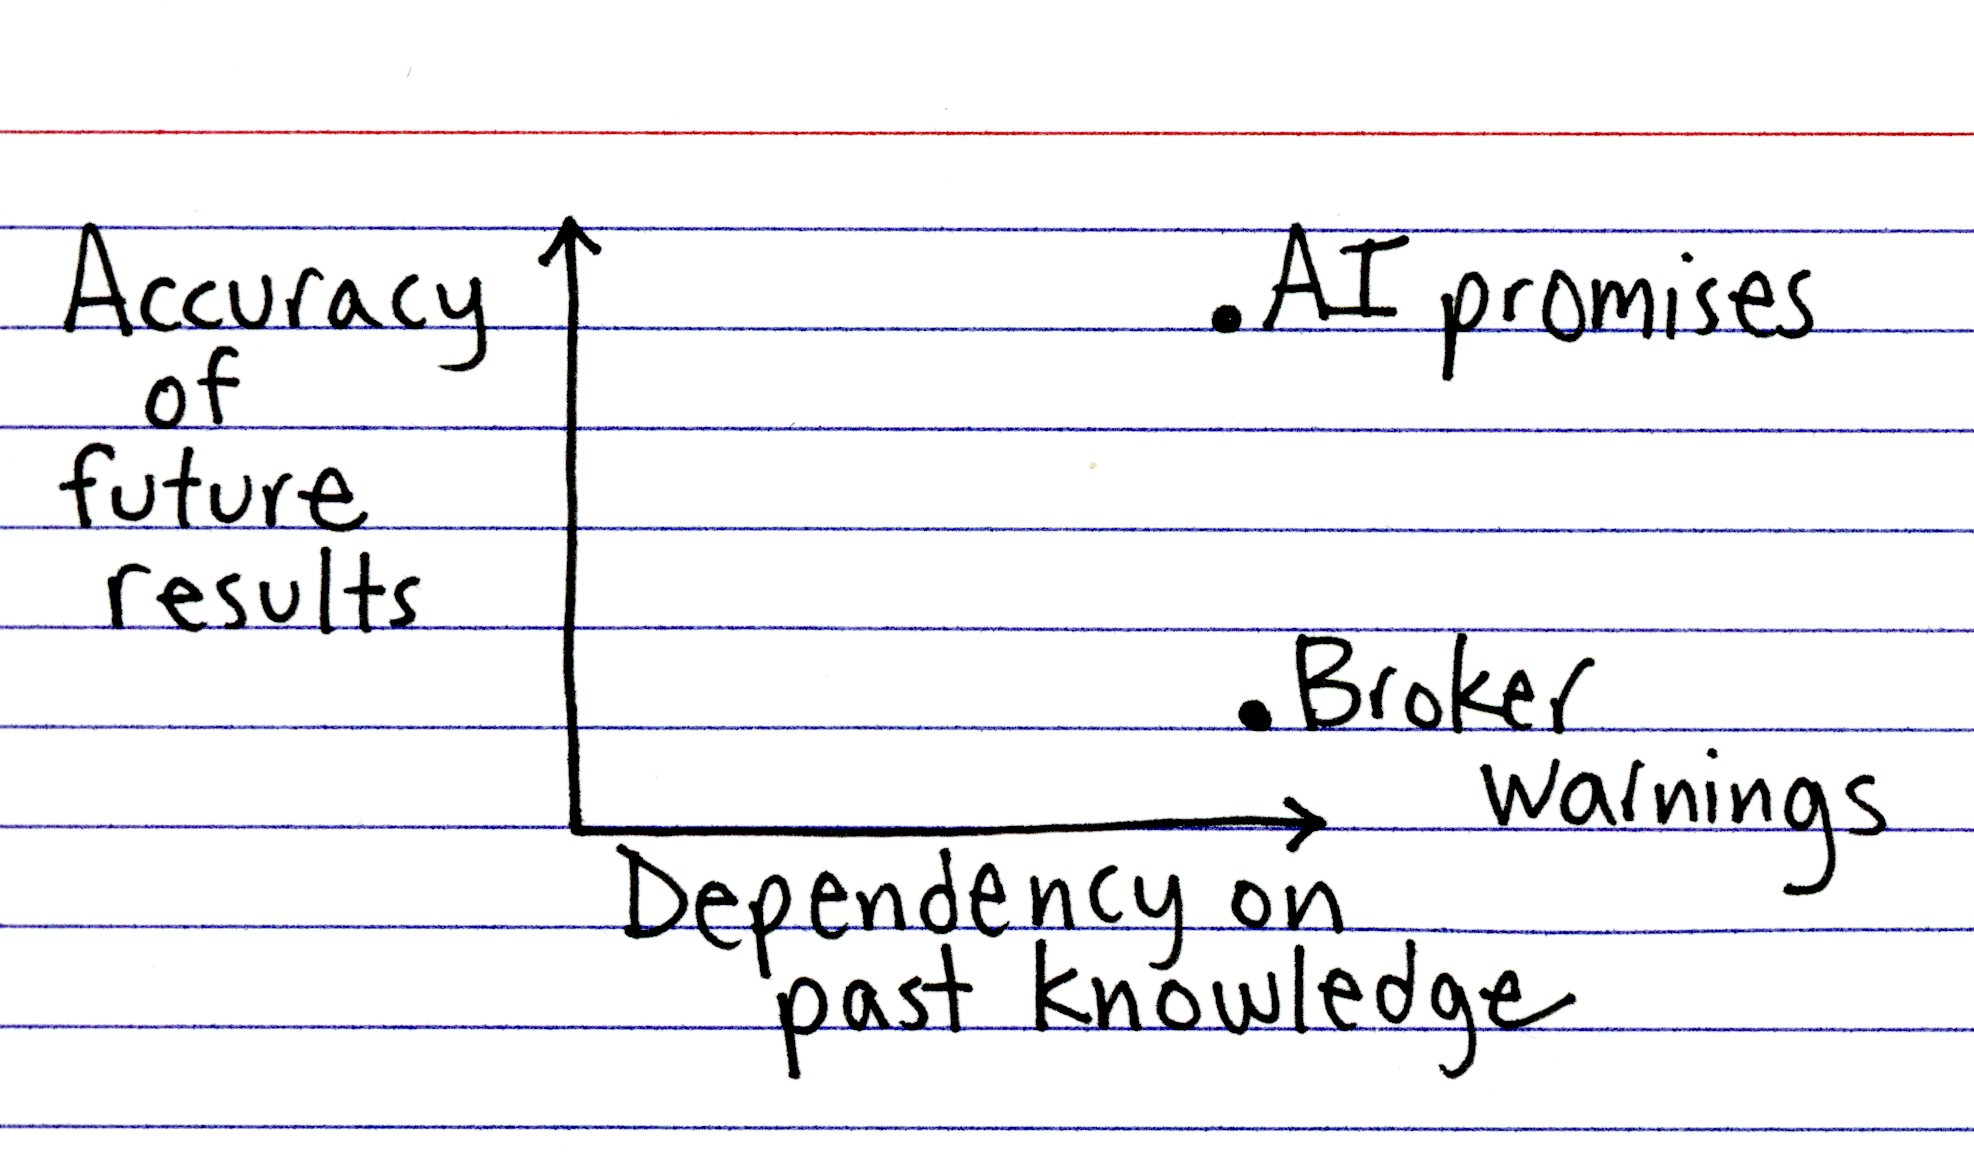 Accuracy
of
future
results
AI promises
Broker
warnings
Dependency on
past knowledge